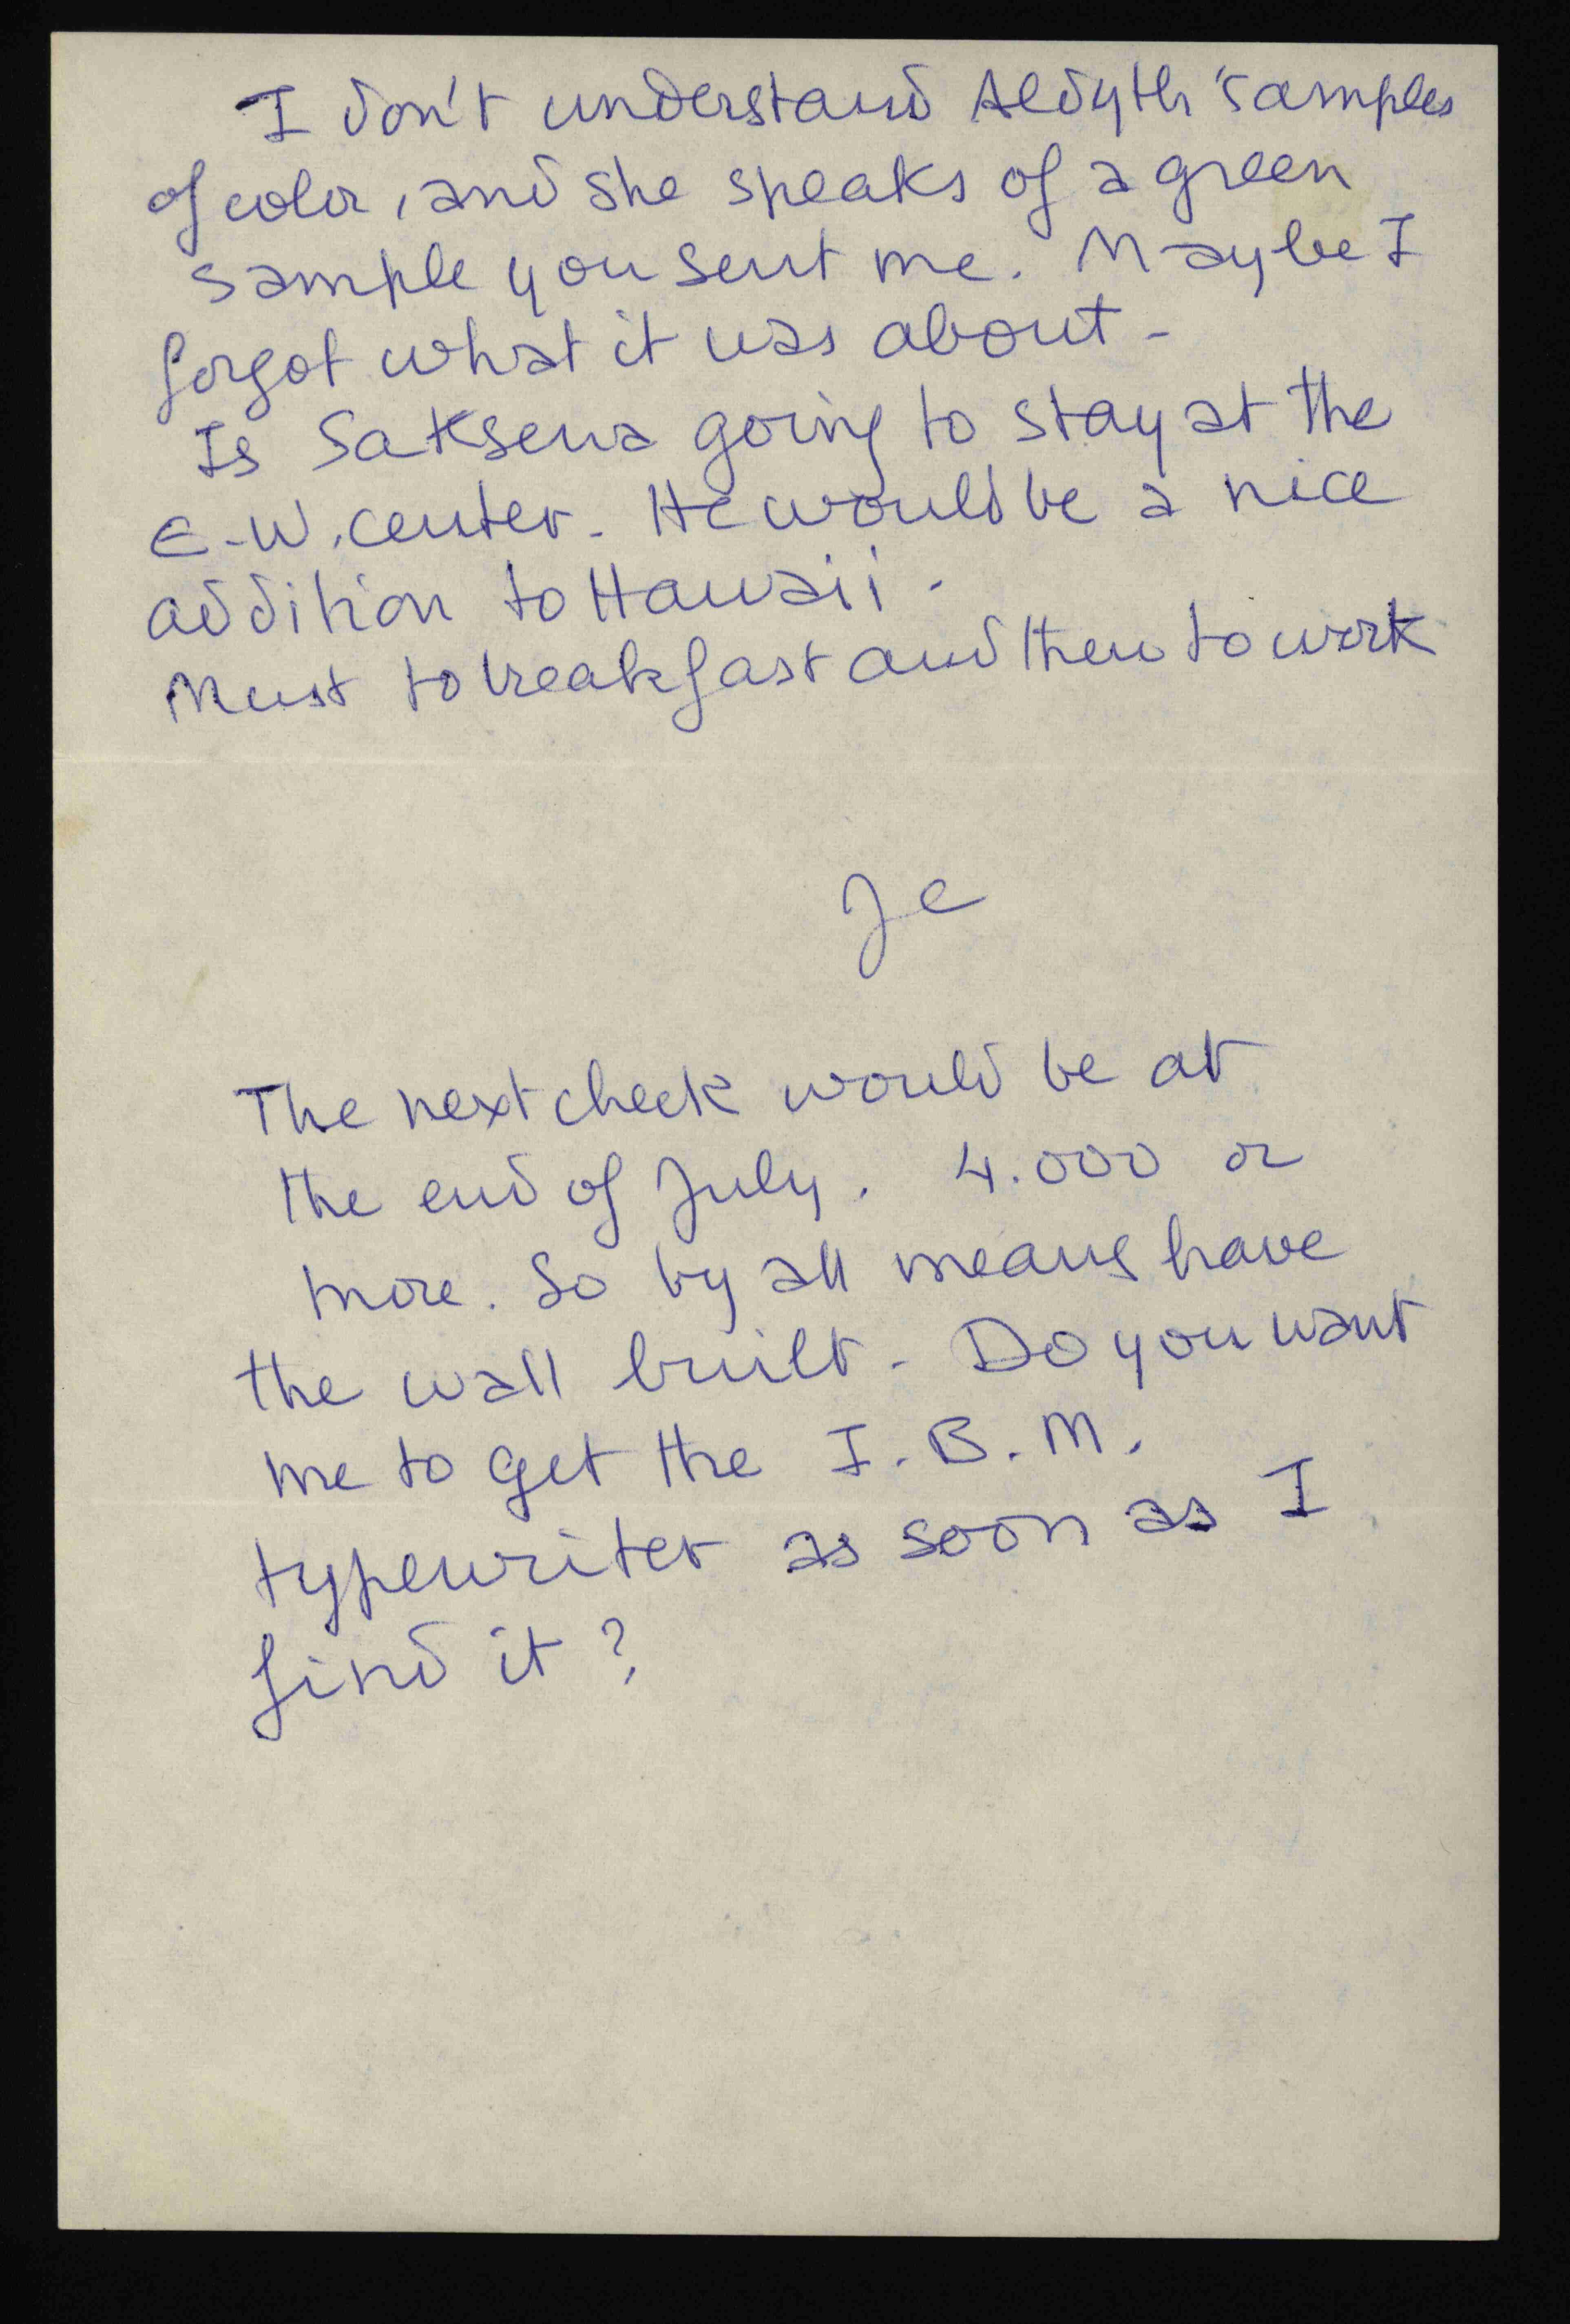 I don't understand Aldyth 'samples
of color, and she speaks of a green
sample you sent me. Maybe I
forgot what it was about -
Is Saksena going to stay at the
E-W. center - He would be a nice
addition to Hawaii -
Must to breakfast and then to work
Je
The next check would be at
the end of July. 4.000 or
more. So by all means have
the wall built - Do you want
me to get the I.B.M.
typewriter as soon as I
find it?